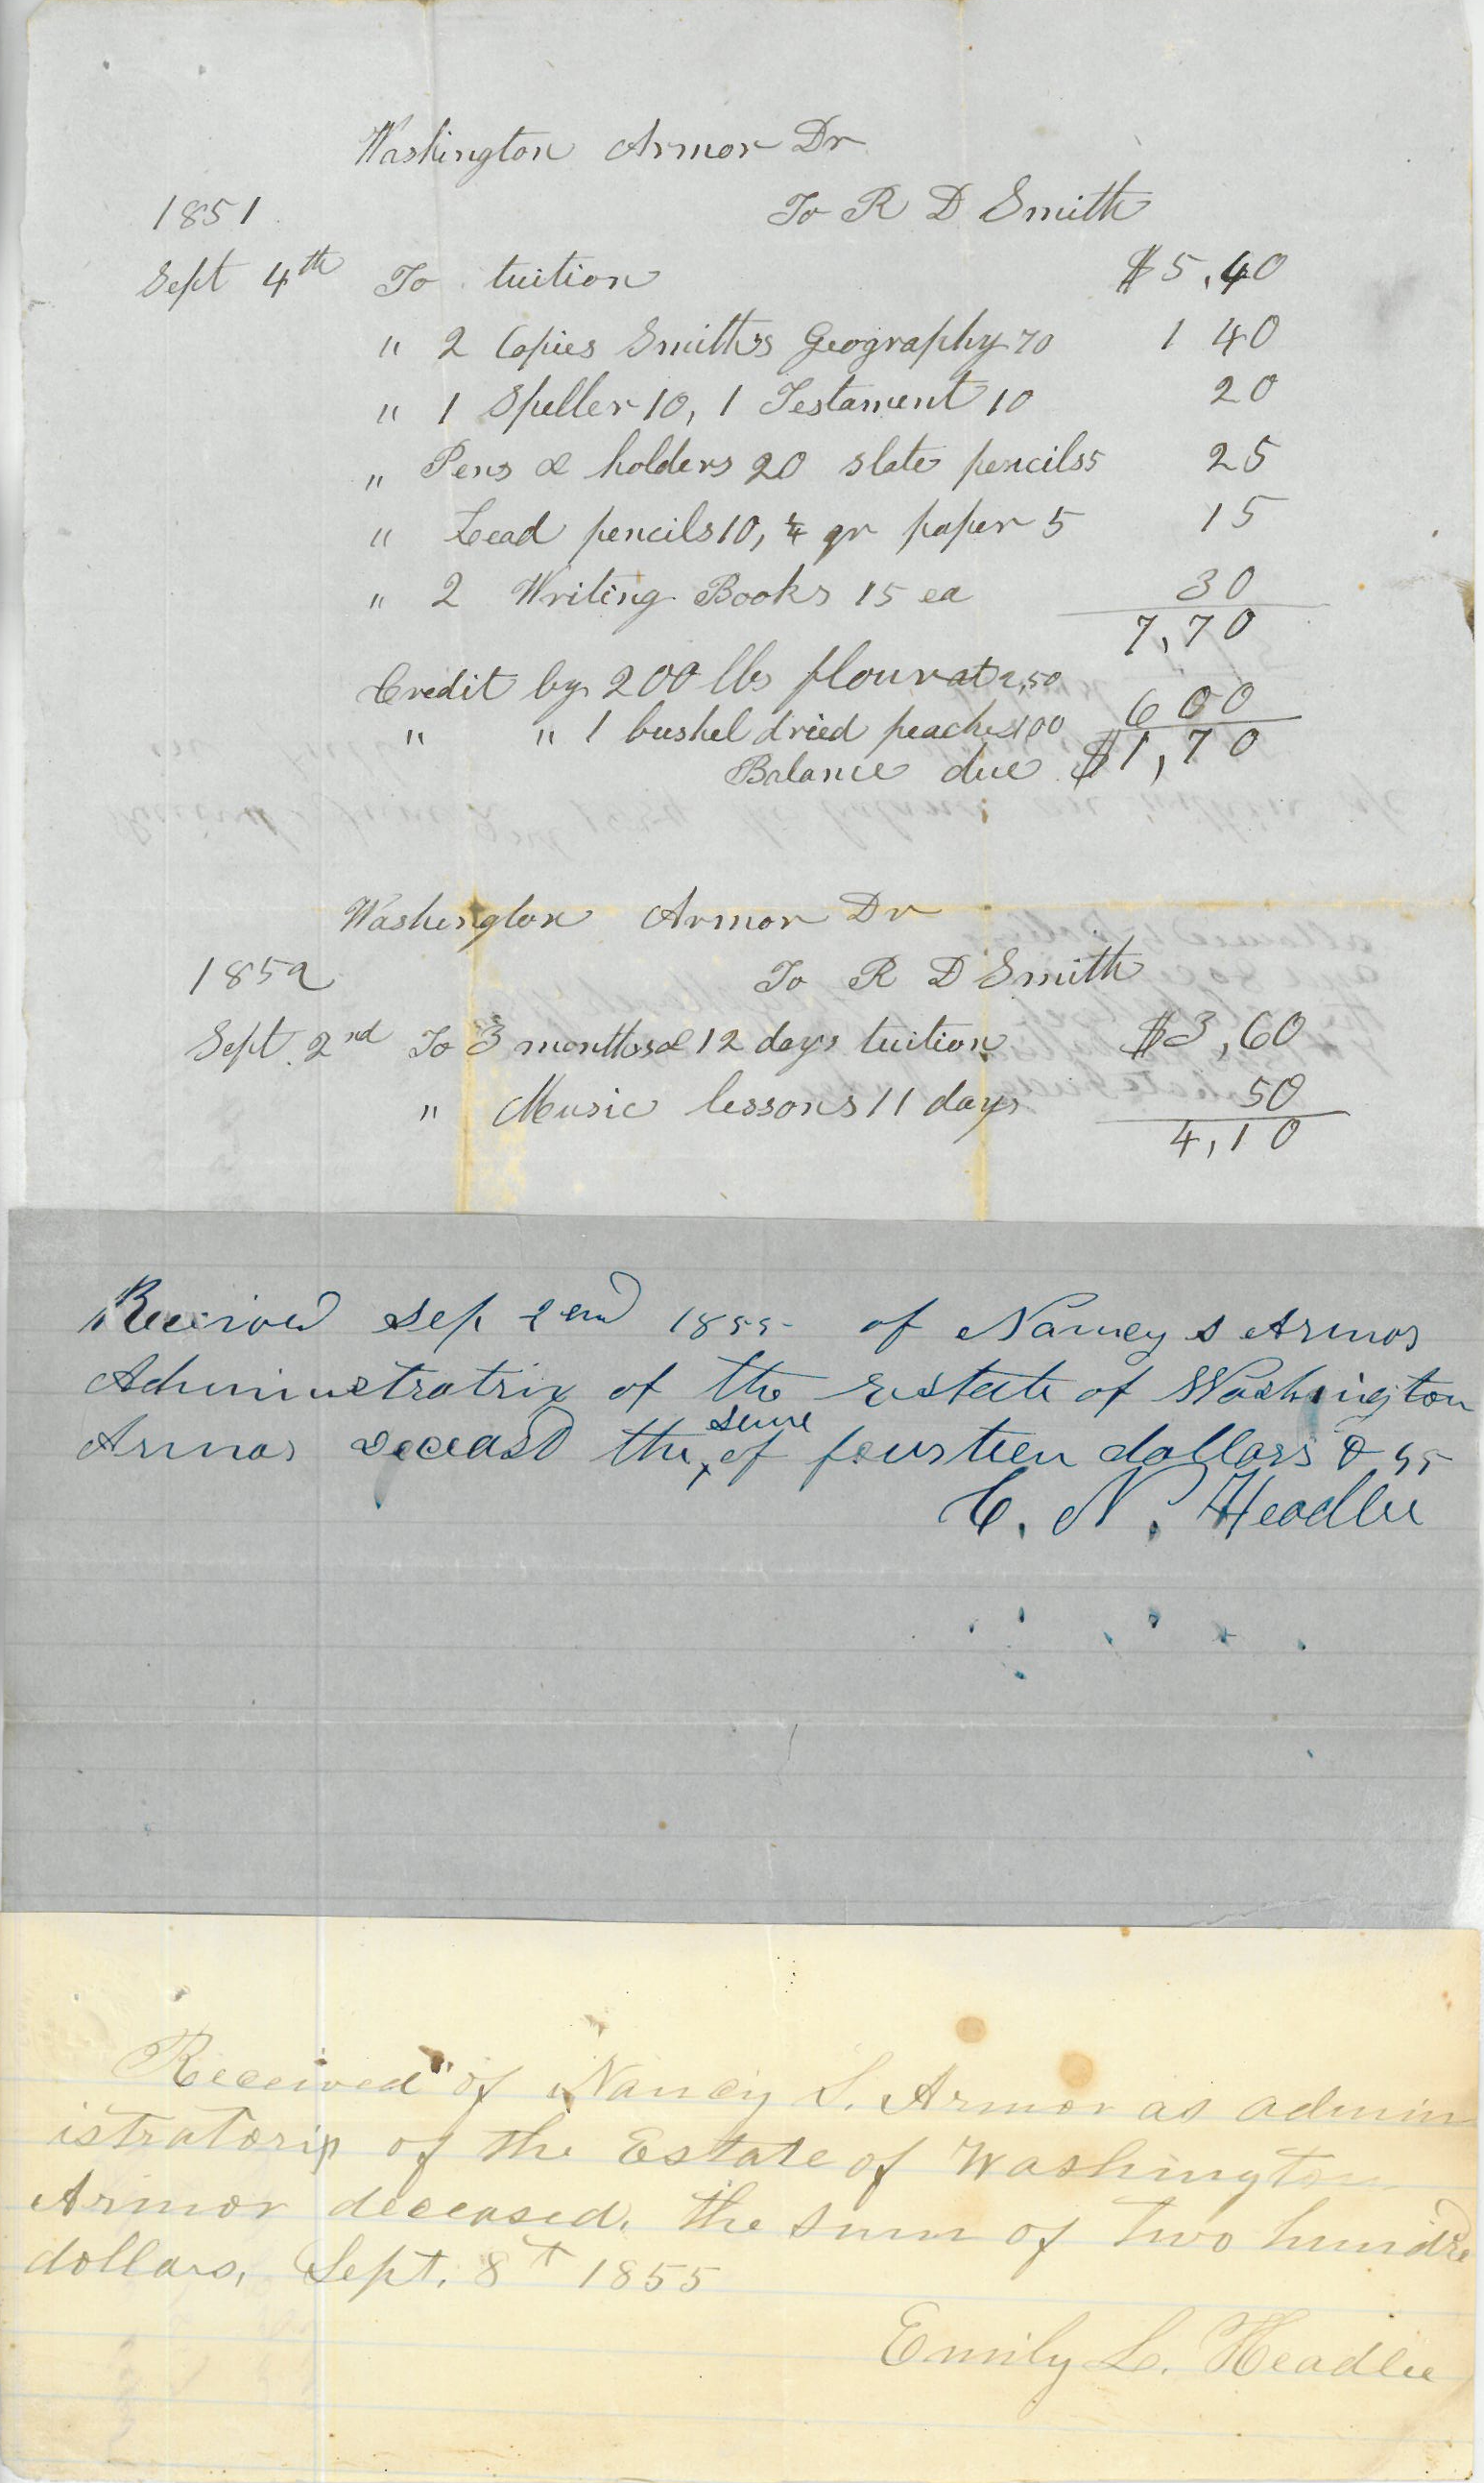 Washington Armor Dr
1851 To R D Smith
Sept 4th To tuition $5,40
" 2 Copies Smith's Geography 70 1 40
" 1 Speller 10, 1 Testament 10 20
" Pens & holders 20 slate pencils 5 25
" Lead pencils 10, ¼ qr paper 5 15
" 2 Writing Books 15 ea 30
7,70
Credit by 200 lbs flour at 2,50
" " 1 bushel dried peaches 100 6 00
Balance due $1,70
Washington Armor Dr
1852 To R D Smith
Sept. 2nd To 3 months & 12 days tuition $3,60
" Music lessons 11 days 50
4,10
Received Sep 2end 1855 of Nancy S Armor
Adminustratrix of the Estate of Washington
Armor deceasd the sume of fourteen dollars & 55
C. N. Headlee
Received of Nancy S. Armor as admin
istratorix of the Estate of Washington
Armor deceased. the sum of two hundred
dollars, Sept. 8t 1855
Emily L. Headlee